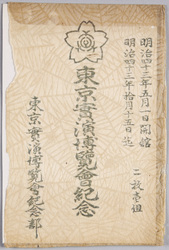 明治四十三年五月一日開館
明治四十三年拾月十五日迄
二枚壱組
東京實演博覧會紀念
東京實演博覧會紀念部